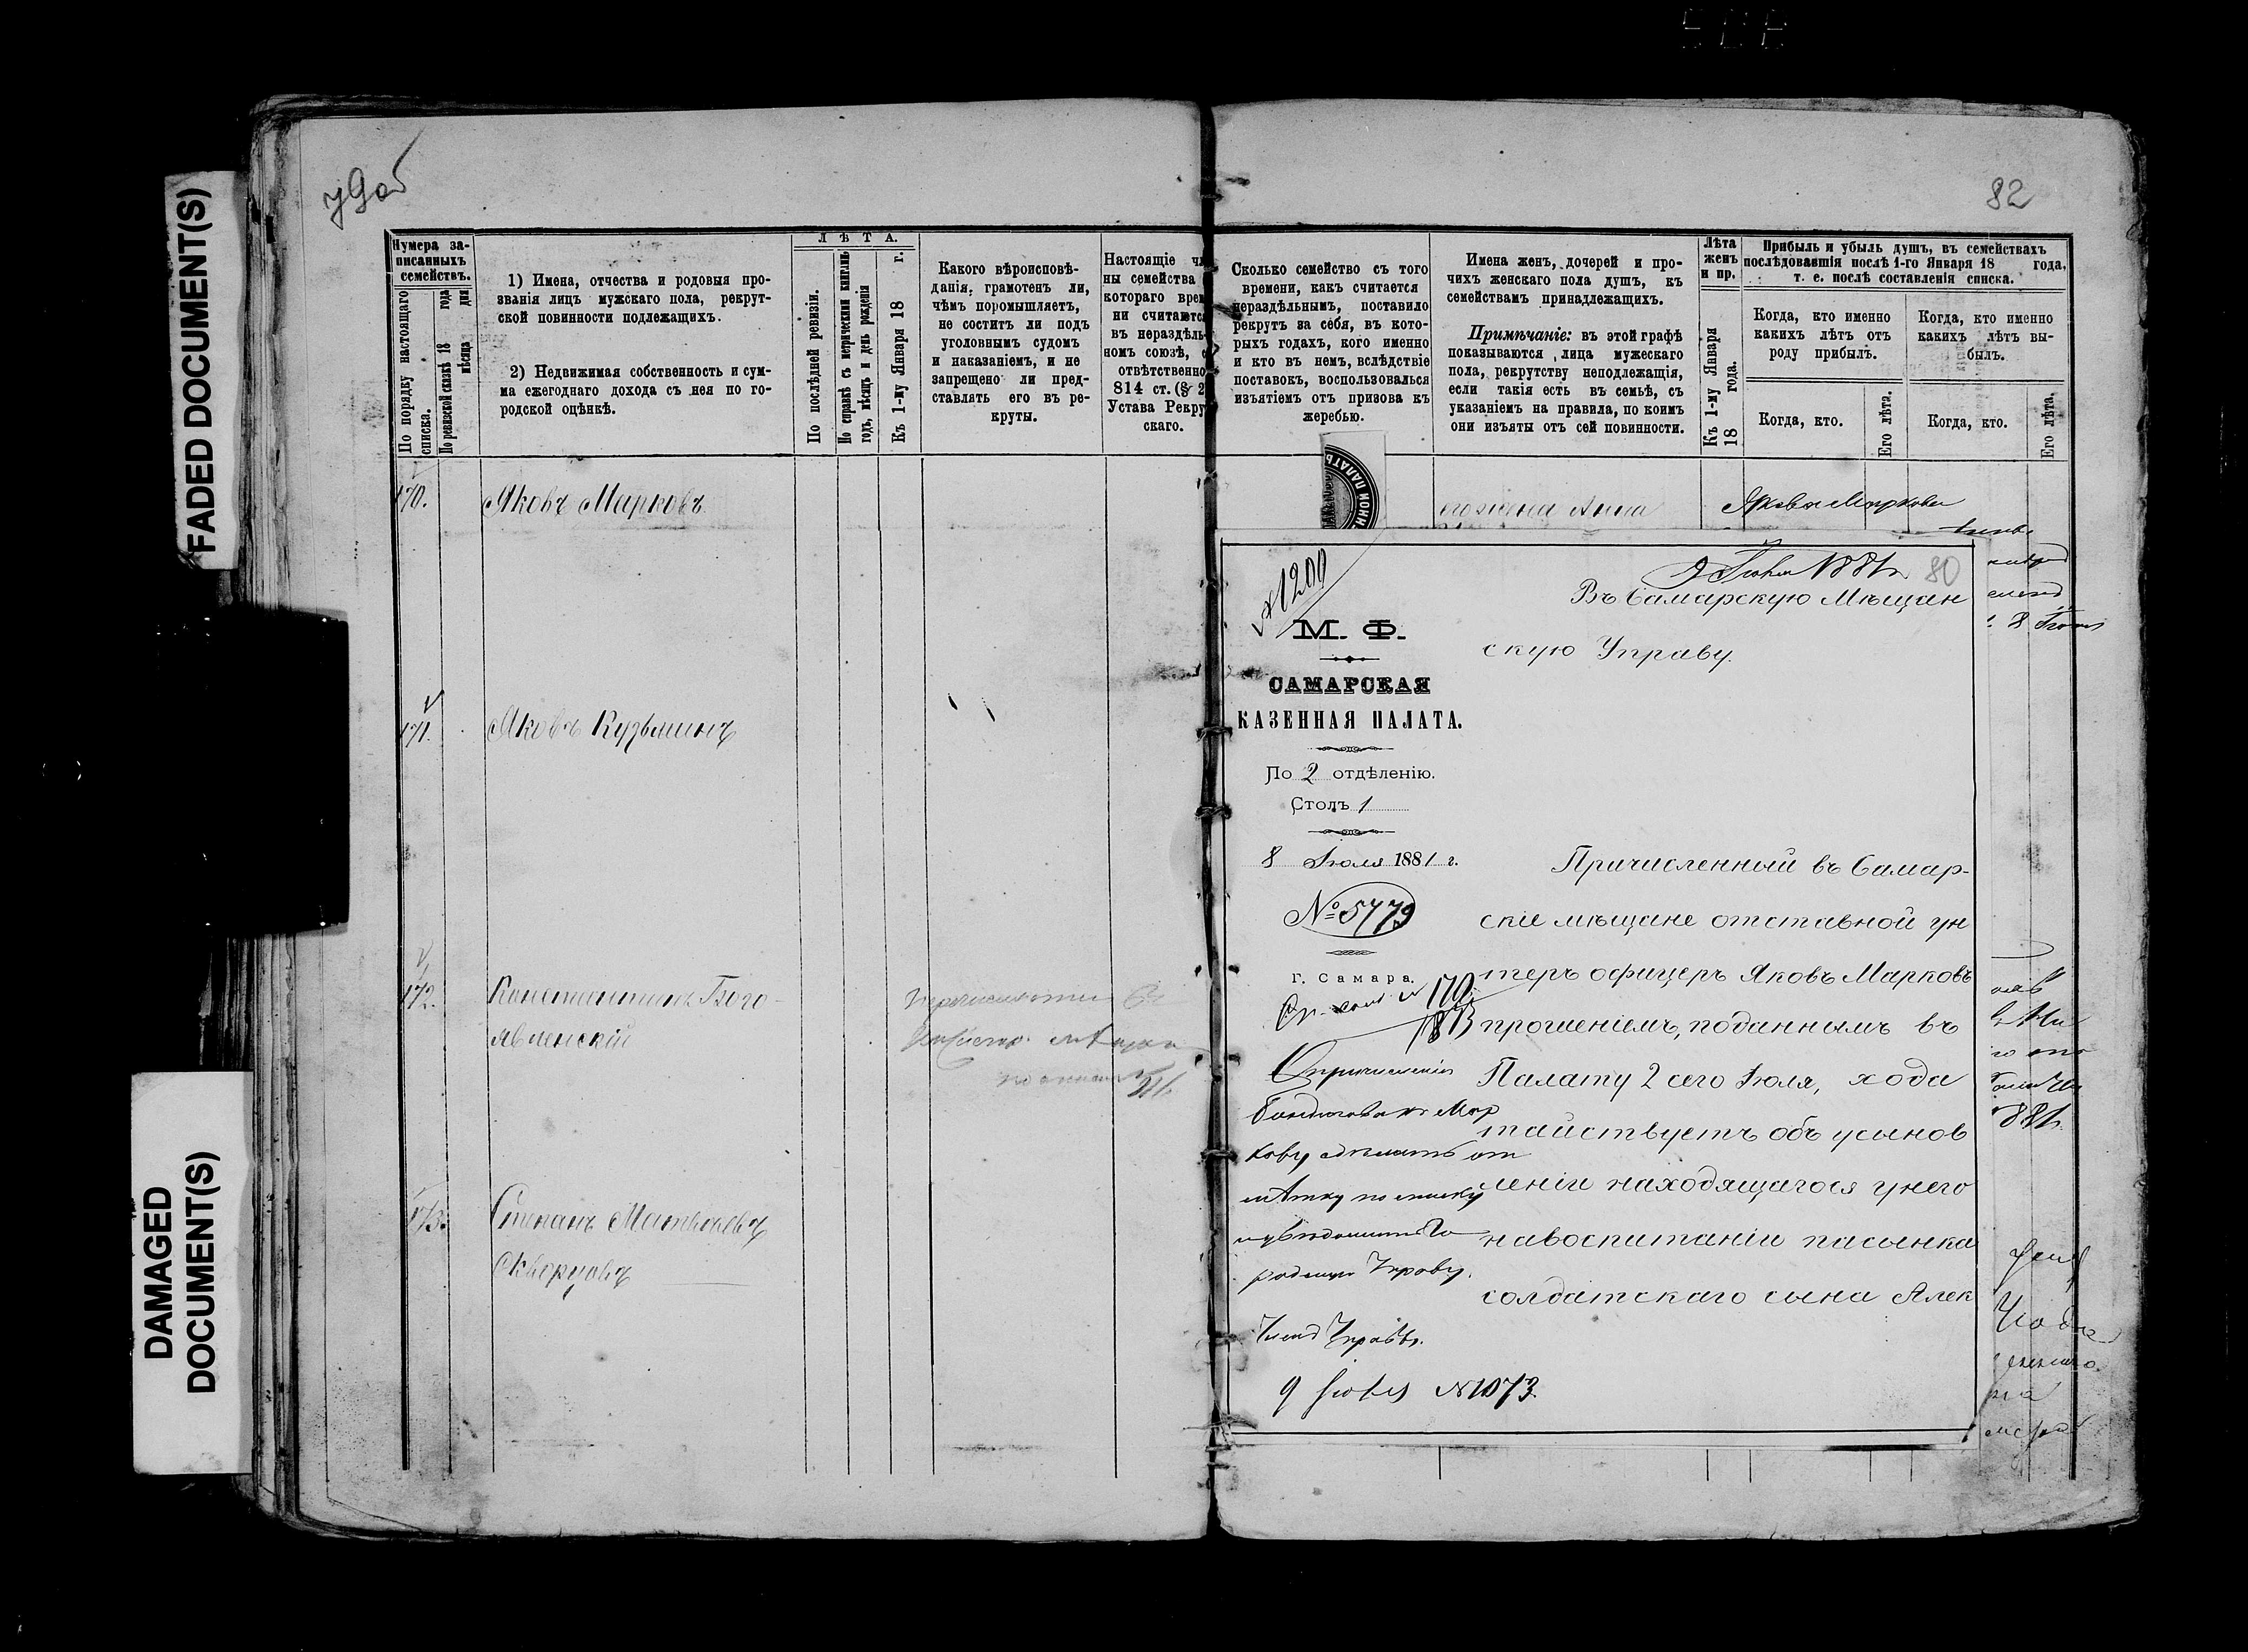 79об
82
FADED DOCUMENT(S)
DAMAGED
DOCUMENT(S)
Нумера за-
писанныхъ
семействъ.
По порядку настоящаго
списка.
По ревизской сказкѣ 18 года
мѣсяца дня
1) Имена, отчества и родовыя про-
званія лицъ мужскаго пола, рекрут-
ской повинности подлежащихъ.
2) Недвижимая собственность и сум-
ма ежегоднаго дохода съ нея по го-
родской оцѣнкѣ.
ЛѢТА.
По послѣдней ревизіи.
По справкѣ съ метрическими книгами
годъ, мѣсяцъ и день рожденія
Къ 1-му Января 18 г.
Какого вѣроисповѣ-
данія, грамотенъ ли,
чѣмъ промышляетъ,
не соститъ ли подъ
уголовнымъ судомъ
и наказаніемъ, и не
запрещено ли пред-
ставлять его въ ре-
круты.
Настоящіе чл
ны семейства
котораго врем
ни считаютс
въ нераздѣль
номъ союзѣ, с
отвѣтственно
814 ст. (§ 2
Устава Рекру
скаго.
Сколько семейство съ того
времени, какъ считается
нераздѣльнымъ, поставило
рекрутъ за себя, въ кото-
рыхъ годахъ, кого именно
и кто въ немъ, вслѣдствіе
поставокъ, воспользовалься
изъятіемъ отъ призова къ
жеребью.
Имена женъ, дочерей и про-
чихъ женскаго пола душъ, къ
семействамъ принадлежащихъ.
Примѣчаніе: въ этой графѣ
показываются лица мужескаго
пола, рекрутству неподлежащія,
если такія есть въ семьѣ, съ
указаніемъ на правила, по коимъ
они изъяты отъ сей повинности.
Лѣта
женъ
и пр.
Къ 1-му Января
18 года.
Прибыль и убыль душъ, въ семействахъ
послѣдовавшія послѣ 1-го Января 18 года,
т. е. послѣ составленія списка.
Когда, кто именно
какихъ лѣтъ отъ
роду прибылъ.
Когда, кто.
Его лѣта.
Когда, кто именно
какихъ лѣтъ вы-
былъ.
Когда, кто.
Его лѣта.
170. Яковъ Марковъ
его жена Анна
Якова Маркова
171. Яковъ Кузьминъ
172. Константинъ Бого-
явленскій
173. Степанъ Матвѣевъ
Скворцовъ
№ 1200
9 Іюля 1881 г.
80
Въ Самарскую Мѣщан
скую Управу.
М. Ф.
САМАРСКАЯ
КАЗЕННАЯ ПАЛАТА.
По 2 отдѣленію.
Столъ 1
8 Іюля 1881 г.
№ 5779
г. Самара.
170
Причисленный въ Самар-
скіе мѣщане отставной ун
теръ офицеръ Яковъ Марковъ
прошеніемъ, поданнымъ въ
Палату 2 сего Іюля, хода
тайствуетъ объ усынов
леніи находящагося у него
на воспитаніи пасынка
солдатскаго сына Алек
О причисленіи
кову сдѣлать от
мѣтку по списку
Членъ Управы
9 Іюля № 1073